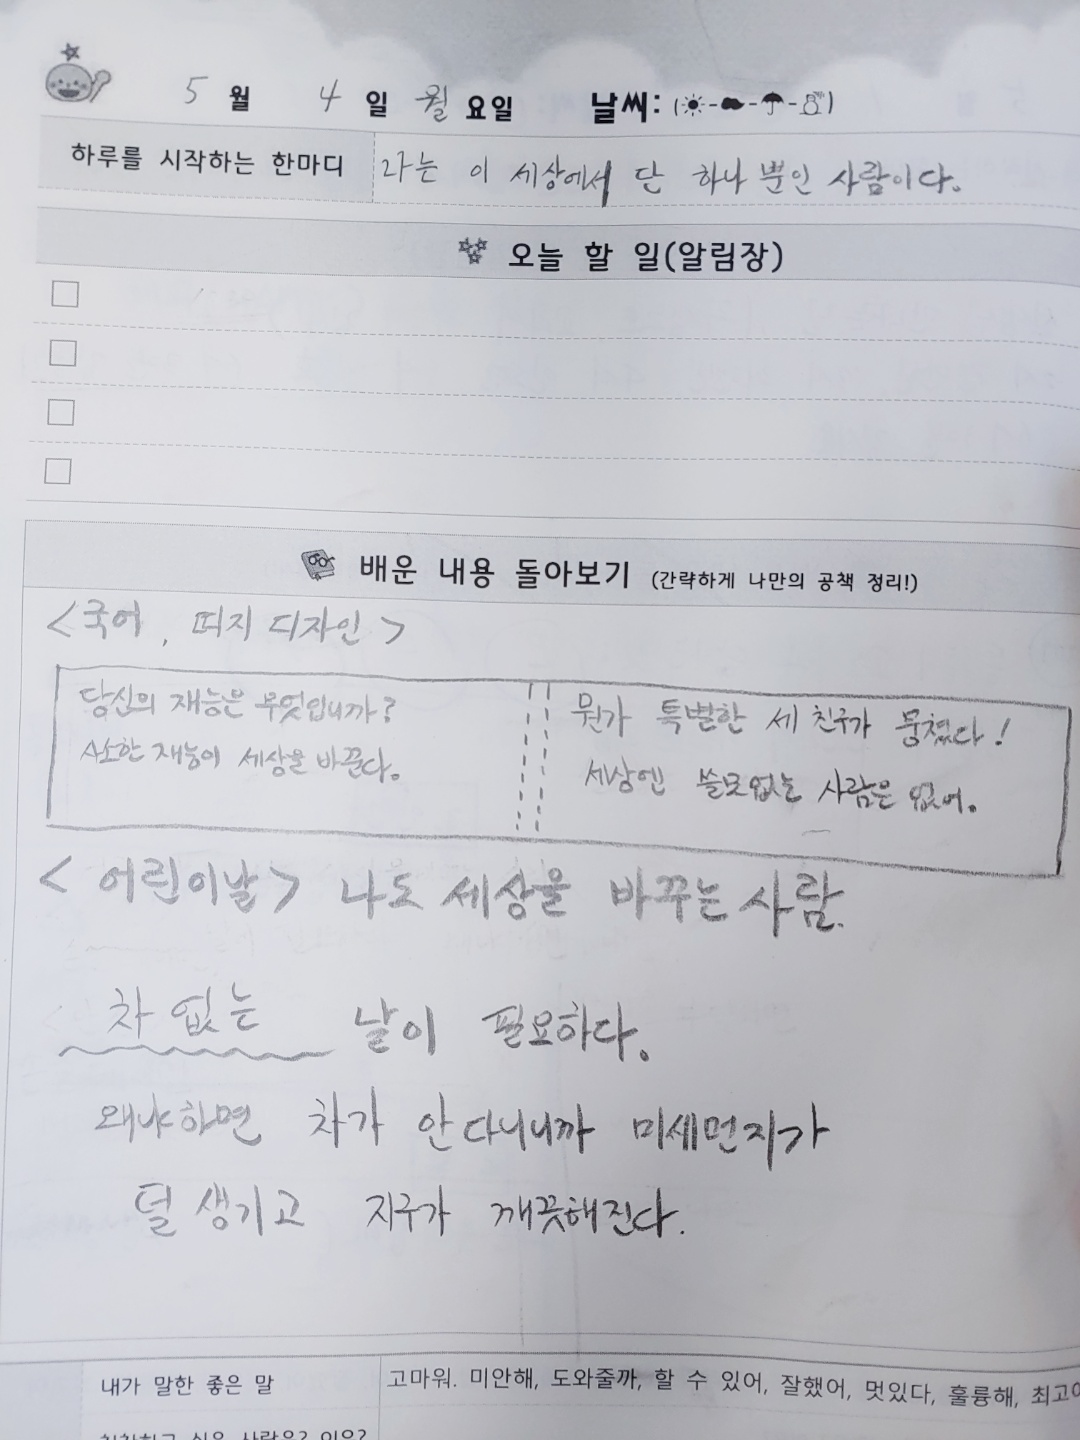 5월 4일 월요일 날씨:
하루를 시작하는 한마디 나는 이 세상에서 단 하나 뿐인 사람이다.
오늘 할 일(알림장)
배운 내용 돌아보기 (간략하게 나만의 공책 정리!)
<국어, 띠지 디자인>
당신의 재능은 무엇입니까?
사소한 재능이 세상을 바꾼다.
뭔가 특별한 세 친구가 뭉쳤다!
세상엔 쓸모없는 사람은 없어.
<어린이날> 나도 세상을 바꾸는 사람.
차 없는 날이 필요하다.
왜냐하면 차가 안다니니까 미세먼지가
덜 생기고 지구가 깨끗해진다.
내가 말한 좋은 말 고마워. 미안해, 도와줄까, 할 수 있어, 잘했어, 멋있다, 훌륭해, 최고야